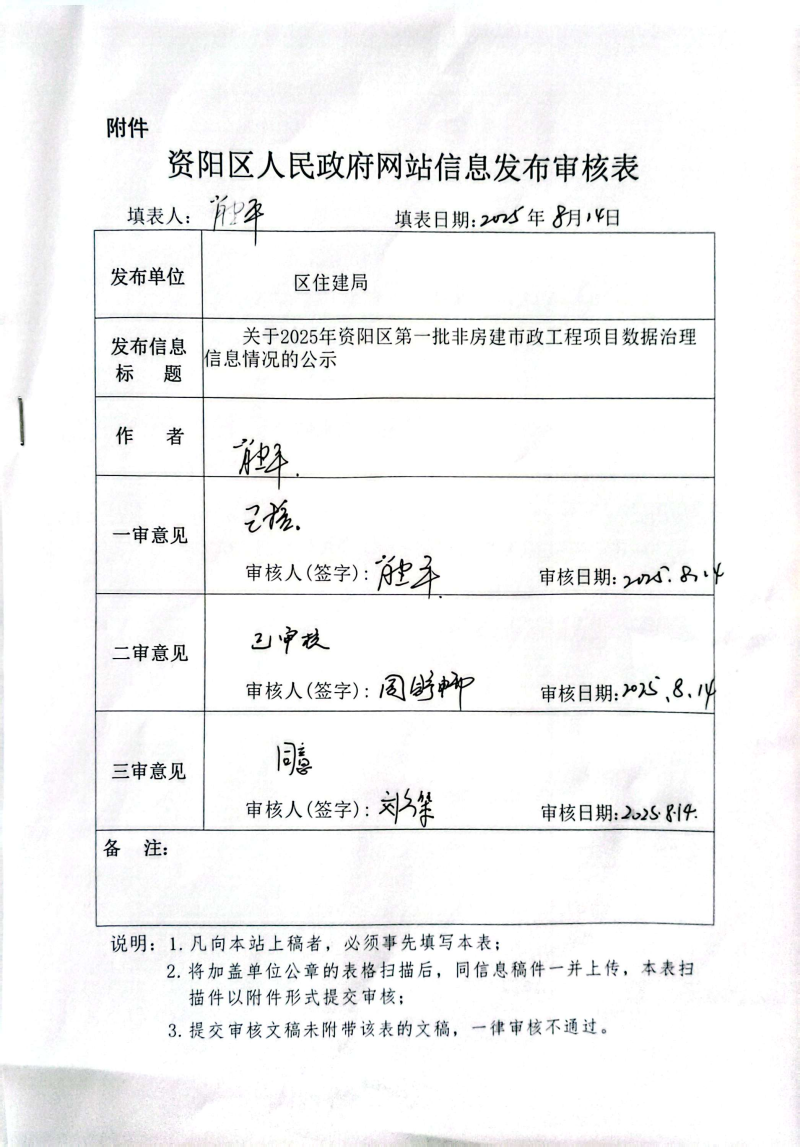 附件
资阳区人民政府网站信息发布审核表
填表人： 填表日期:2025年8月14日
发布单位 区住建局
发布信息标　题 关于2025年资阳区第一批非房建市政工程项目数据治理
信息情况的公示
作　者
一审意见 已核.
审核人(签字): 审核日期:2025.8.14
二审意见 已审核
审核人(签字): 审核日期:2025.8.14
三审意见 同意
审核人(签字): 审核日期:2025.8.14.
备　注:
说明：1. 凡向本站上稿者，必须事先填写本表；
2. 将加盖单位公章的表格扫描后，同信息稿件一并上传，本表扫
描件以附件形式提交审核；
3. 提交审核文稿未附带该表的文稿，一律审核不通过。